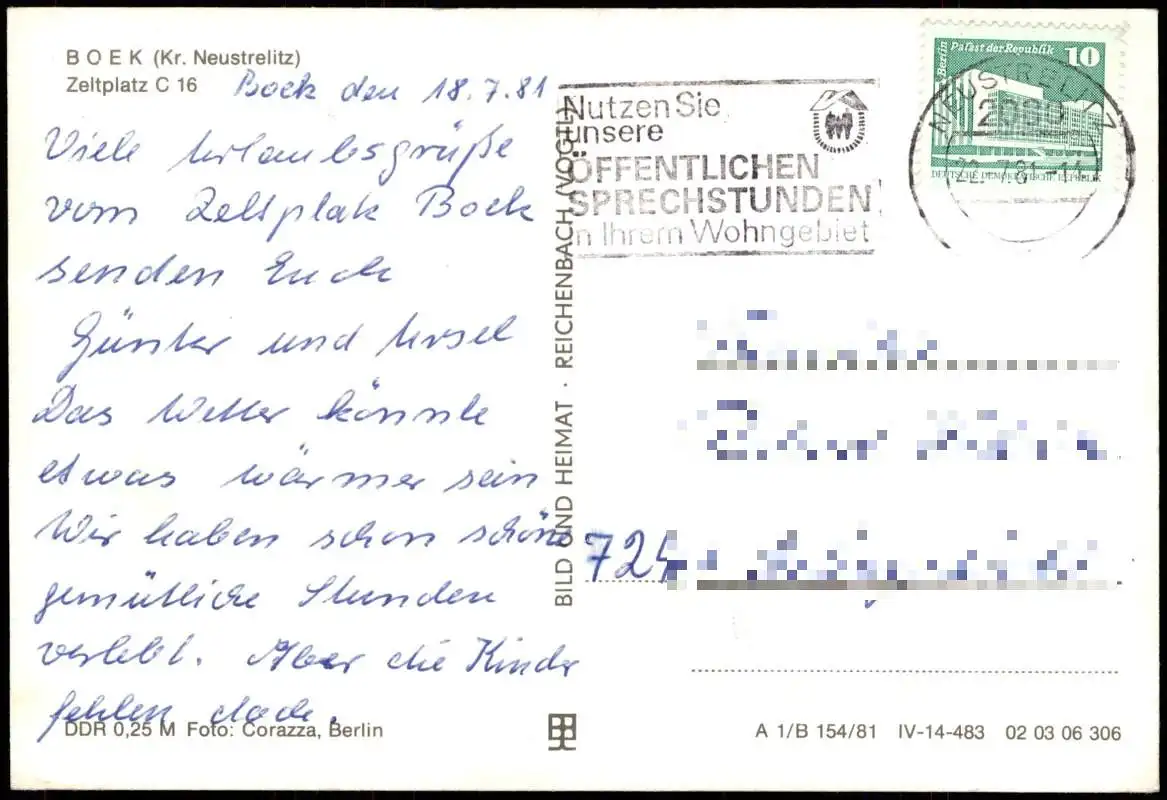 BOEK (Kr. Neustrelitz)
Zeltplatz C 16
Boek den 18.7.81
Viele Urlaubsgrüße
vom Zeltplatz Boek
senden Euch
Günter und Ursel
Das Wetter könnte
etwas wärmer sein
Wir haben schon schöne
gemütliche Stunden
verlebt. Aber die Kinder
fehlen doch.
DDR 0,25 M Foto: Corazza, Berlin
BILD UND HEIMAT · REICHENBACH/VOGTL
Nutzen Sie
unsere
ÖFFENTLICHEN
SPRECHSTUNDEN
in Ihrem Wohngebiet
Berlin Palast der Republik 10
DEUTSCHE DEMOKRATISCHE REPUBLIK
NEUSTRELITZ
2080
22.-7.81-11
724
A 1/B 154/81 IV-14-483 02 03 06 306